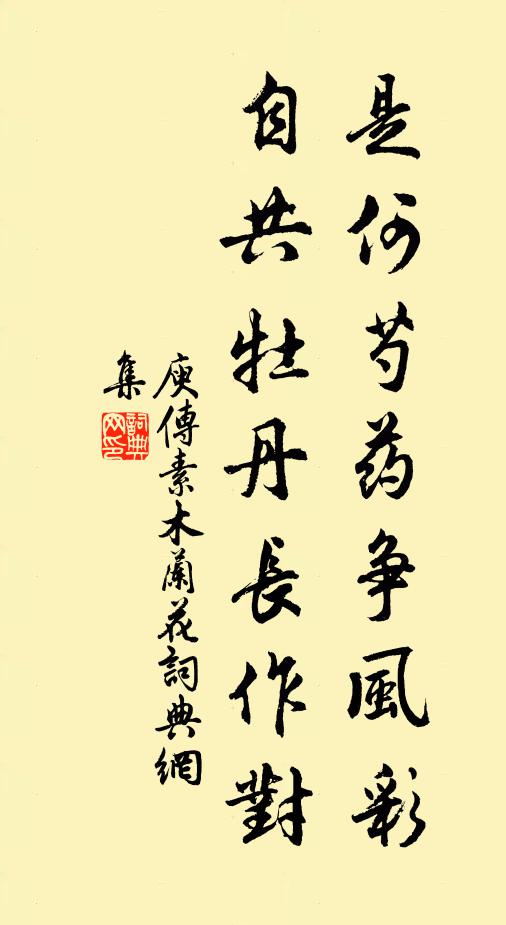 是何芍药争風彩
自共牡丹長作對
庾傳素木蘭花詞典網
集
詞典
网印